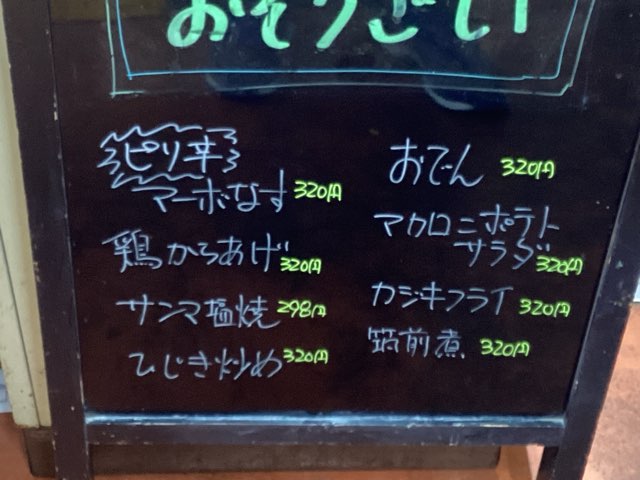 おそうざい
ピリ辛
マーボなす 320円
鶏からあげ 320円
サンマ塩焼 298円
ひじき炒め 320円
おでん 320円
マカロニポテト
サラダ 320円
カジキフライ 320円
筑前煮 320円